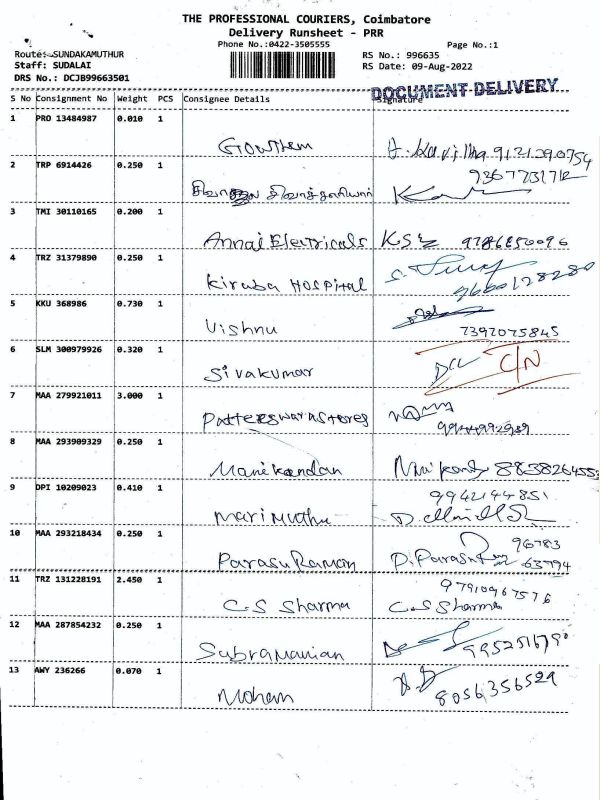 THE PROFESSIONAL COURIERS, Coimbatore
Delivery Runsheet - PRR
Phone No.:0422-3505555
Page No.:1
Route: SUNDAKAMUTHUR
RS No.: 996635
Staff: SUDALAI
RS Date: 09-Aug-2022
DRS No.: DCJB99663501
DOCUMENT DELIVERY
S No Consignment No Weight PCS Consignee Details Signature
1 PRO 13484987 0.010 1 Gowthem
2 TRP 6914426 0.250 1
3 TMI 30110165 0.200 1 Annai Electricals
4 TRZ 31379890 0.250 1 Kiruba Hospital
5 KKU 368986 0.730 1 Vishnu 7397075845
6 SLM 300979926 0.320 1 Sivakumar C/N
7 MAA 279921011 3.000 1
8 MAA 293909329 0.250 1 Manikandan
9 DPI 10209023 0.410 1 Marimuthu 9942144851
10 MAA 293218434 0.250 1 ParasuRaman 96783
63794
11 TRZ 131228191 2.450 1 C.S Sharma C.S Sharma
12 MAA 287854232 0.250 1 Subramanian
13 AWY 236266 0.070 1 Mohan 8056356529